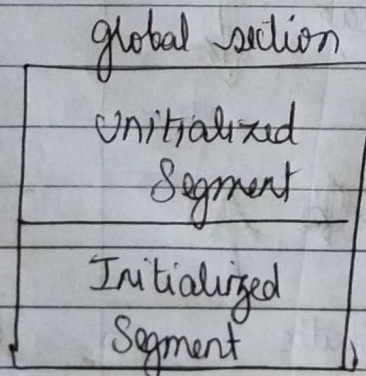 global section
Unitialized
Segment
Initialized
Segment